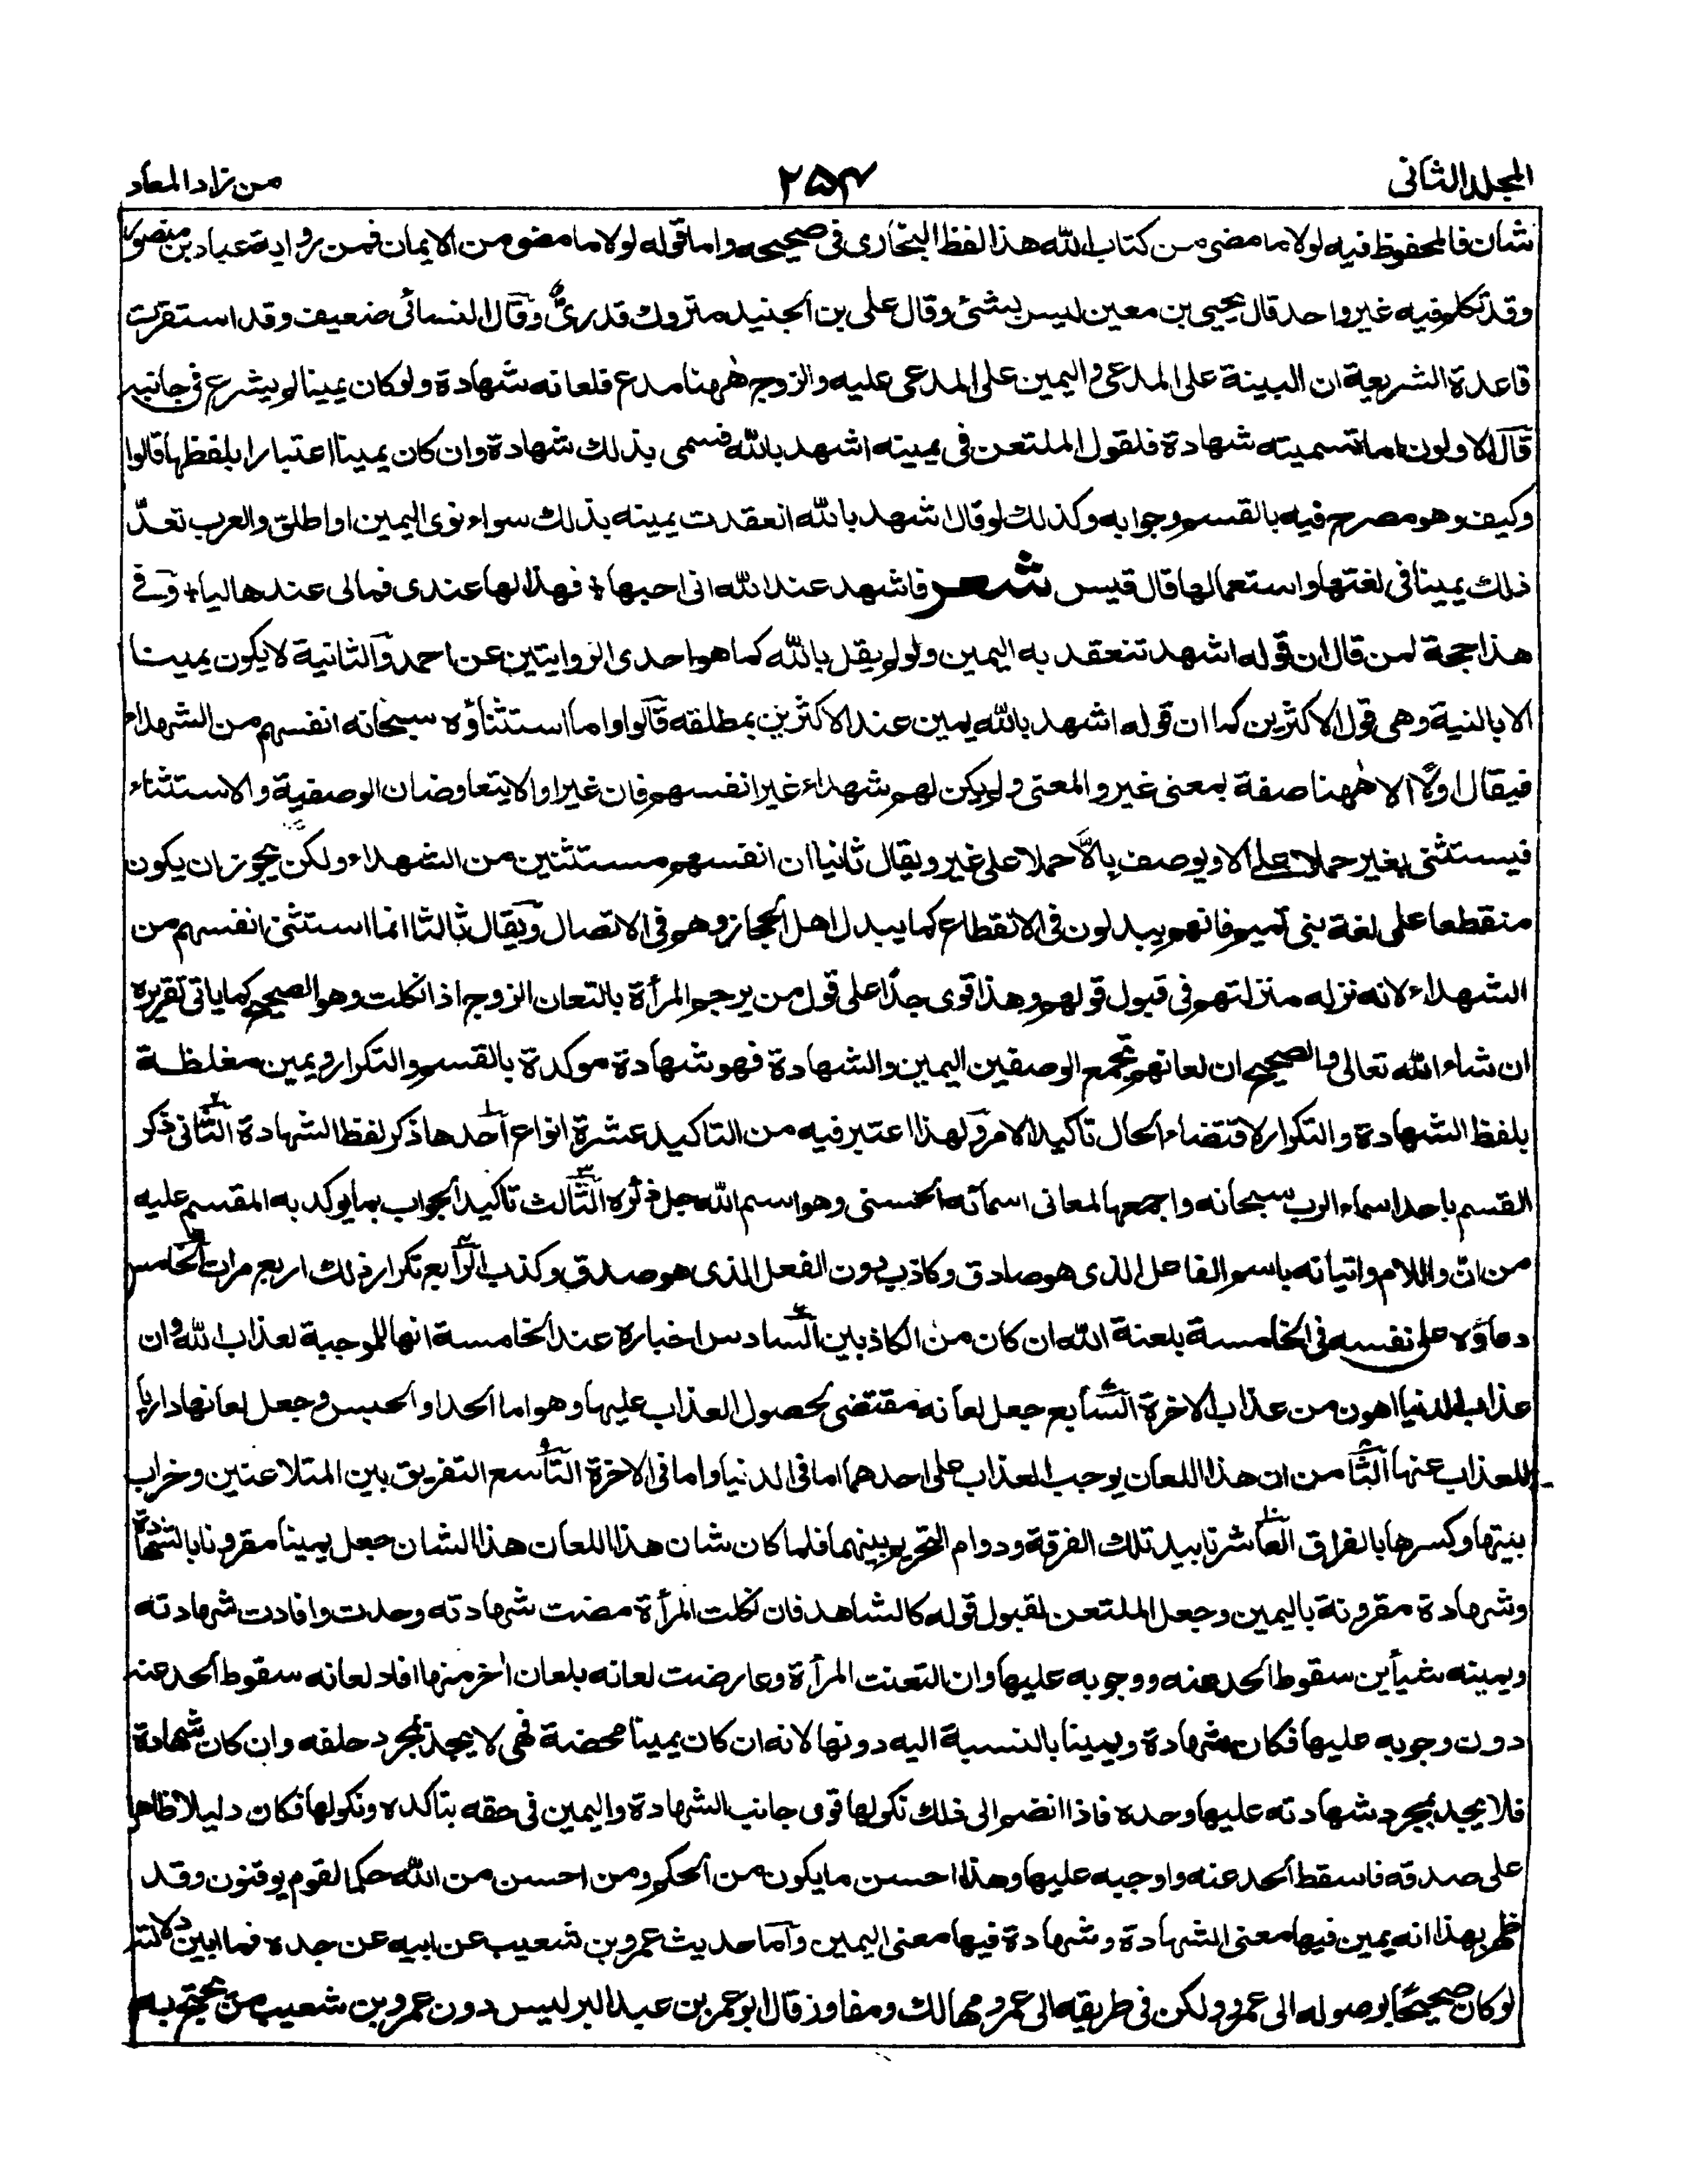 المجلد الثاني
٢٥٤
من زاد المعاد
شان فالمحفوظ فيه لولا ما مضى من كتاب الله هذا لفظ البخاري في صحيحه واما قوله لولا ما مضى من الايمان فمن رواية عباد بن منصور
وقد تكلم فيه غير واحد قال يحيى بن معين ليس بشئ وقال علي بن الجنيد متروك قدري وقال النسائي ضعيف وقد استقرت
قاعدة الشريعة ان البينة على المدعي واليمين على المدعى عليه والزوج ههنا مدع فلعانه شهادة ولو كان يمينا لم يشرع في جانبه
قال الاولون اما تسميته شهادة فلقول الملتعن في يمينه اشهد بالله فسمى بذلك شهادة وان كان يمينا اعتبارا بلفظها قالوا
وكيف وهو مصرح فيه بالقسم وجوابه وكذلك لو قال اشهد بالله انعقدت يمينه بذلك سواء نوى اليمين او اطلق والعرب تعدّ
ذلك يمينا في لغتها واستعمالها قال قيس شعر فاشهد عند الله اني احبها + فهذا لها عندي فما لي عندها ليا + وفي
هذا حجة لمن قال ان قوله اشهد تنعقد به اليمين ولو لم يقل بالله كما هو احدى الروايتين عن احمد والثانية لا يكون يمينا
الا بالنية وهي قول الاكثرين كما ان قوله اشهد بالله يمين عند الاكثرين بمطلقه قالوا واما استثناؤه سبحانه انفسهم من الشهداء
فيقال اولًا الا ههنا صفة بمعنى غير والمعنى ولم يكن لهم شهداء غير انفسهم فان غيرا والا يتعاوضان الوصفية والاستثناء
فيستثنى بغير حملا على الا ويوصف بالّا حملا على غير ويقال ثانيا ان انفسهم مستثنين من الشهداء ولكن يجوز ان يكون
منقطعا على لغة بني تميم فانهم يبدلون في الانقطاع كما يبدل اهل الحجاز وهم في الاتصال ويقال ثالثا انما استثنى انفسهم من
الشهداء لانه نزله منزلتهم في قبول قولهم وهذا قوى جدًا على قول من يرجم المرأة بالتعان الزوج اذا نكلت وهو الصحيح كما ياتي تقريره
ان شاء الله تعالى والصحيح ان لعانهم تجمع الوصفين اليمين والشهادة فهو شهادة موكدة بالقسم والتكرار ويمين مغلظة
بلفظ الشهادة والتكرار لاقتضاء الحال تاكيد الامر ولهذا اعتبر فيه من التاكيد عشرة انواع احدها ذكر لفظ الشهادة الثاني ذكر
القسم باحد اسماء الرب سبحانه واجمعها لمعاني اسمائه الحسنى وهو اسم الله جل ذكره الثالث تاكيد الجواب بما يوكد به المقسم عليه
من انّ واللام واتيانه باسم الفاعل الذي هو صادق وكاذب دون الفعل الذي هو صدق وكذب الرابع تكرار ذلك اربع مرات الخامس
دعاؤه على نفسه في الخامسة بلعنة الله ان كان من الكاذبين السادس اخباره عند الخامسة انها الموجبة لعذاب الله وان
عذاب الدنيا اهون من عذاب الاخرة السابع جعل لعانه مقتضى لحصول العذاب عليها وهو اما الحد او الحبس وجعل لعانها داريا
للعذاب عنها الثامن ان هذا اللعان يوجب العذاب على احدهما اما في الدنيا واما في الاخرة التاسع التفريق بين المتلاعنين وخراب
بيتها وكسرها بالفراق العاشر تابيد تلك الفرقة ودوام التحريم بينهما فلما كان شان هذا اللعان هذا الشان جعل يمينا مقرونا بالشهادة
وشهادة مقرونة باليمين وجعل الملتعن لقبول قوله كالشاهد فان نكلت المرأة مضت شهادته وحدت وافادت شهادته
ويمينه شيأين سقوط الحد عنه ووجوبه عليها وان التعنت المرأة وعارضت لعانه بلعان اخر منها افاد لعانه سقوط الحد عنه
دون وجوبه عليها فكان شهادة ويمينا بالنسبة اليه دونها لانه ان كان يمينا محضة فهي لا يحد بمجرد حلفه وان كان شهادة
فلا يحد بمجرد شهادته عليها وحده فاذا انضم الى ذلك نكولها قوى جانب الشهادة واليمين في حقه بتاكده ونكولها فكان دليلا ظاهرا
على صدقه فاسقط الحد عنه واوجبه عليها وهذا احسن ما يكون من الحكم ومن احسن من الله حكما لقوم يوقنون وقد
ظهر بهذا انه يمين فيها معنى الشهادة وشهادة فيها معنى اليمين واما حديث عمرو بن شعيب عن ابيه عن جده فما ابين دلالته
لو كان صحيحًا بوصوله الى عمرو ولكن في طريقه الى عمرو مهالك ومفاوز قال ابو عمر بن عبد البر ليس دون عمرو بن شعيب من يحتج به